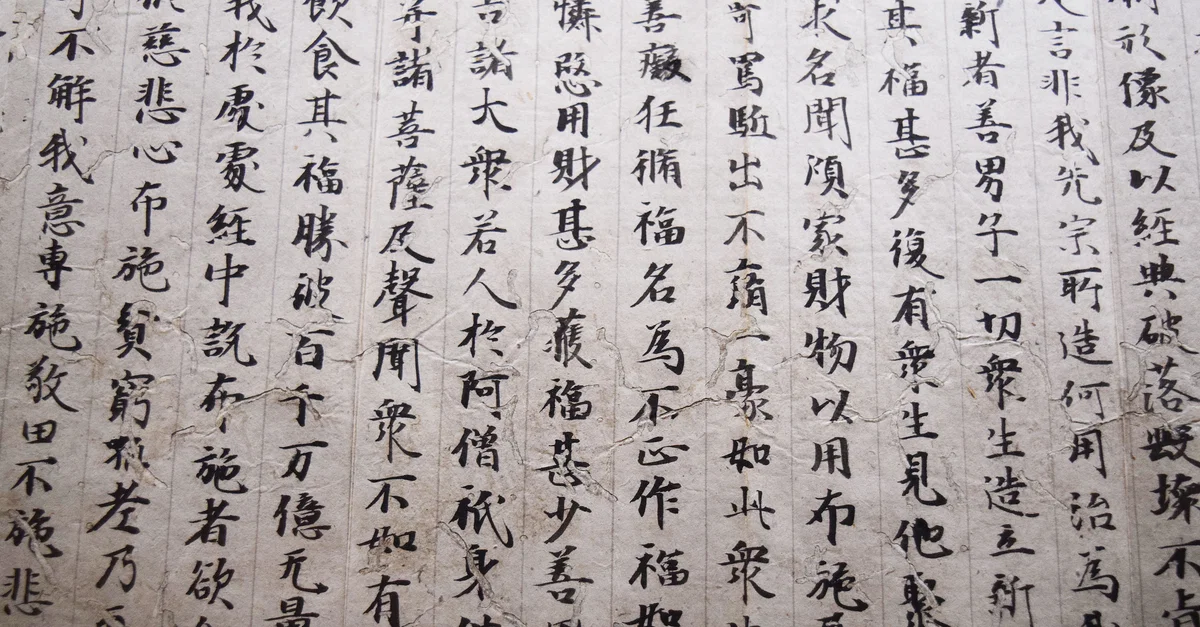 形像及以經典破落毀壞不肯
言非我先宗所造何用治為
新者善男子一切衆生造立新
其福甚多復有衆生見他聚
求名聞傾家財物以用布施及
罵駈出不濟一豪如此衆
善癡狂脩福名為不正作福如
憐愍用財甚多獲福甚少善
告諸大衆若人於阿僧祇身
諸菩薩及聲聞衆不如有
飲食其福勝彼百千万億无量
我於處處經中說布施者欲
慈悲心布施貧窮孤老乃
不解我意專施敬田不施悲